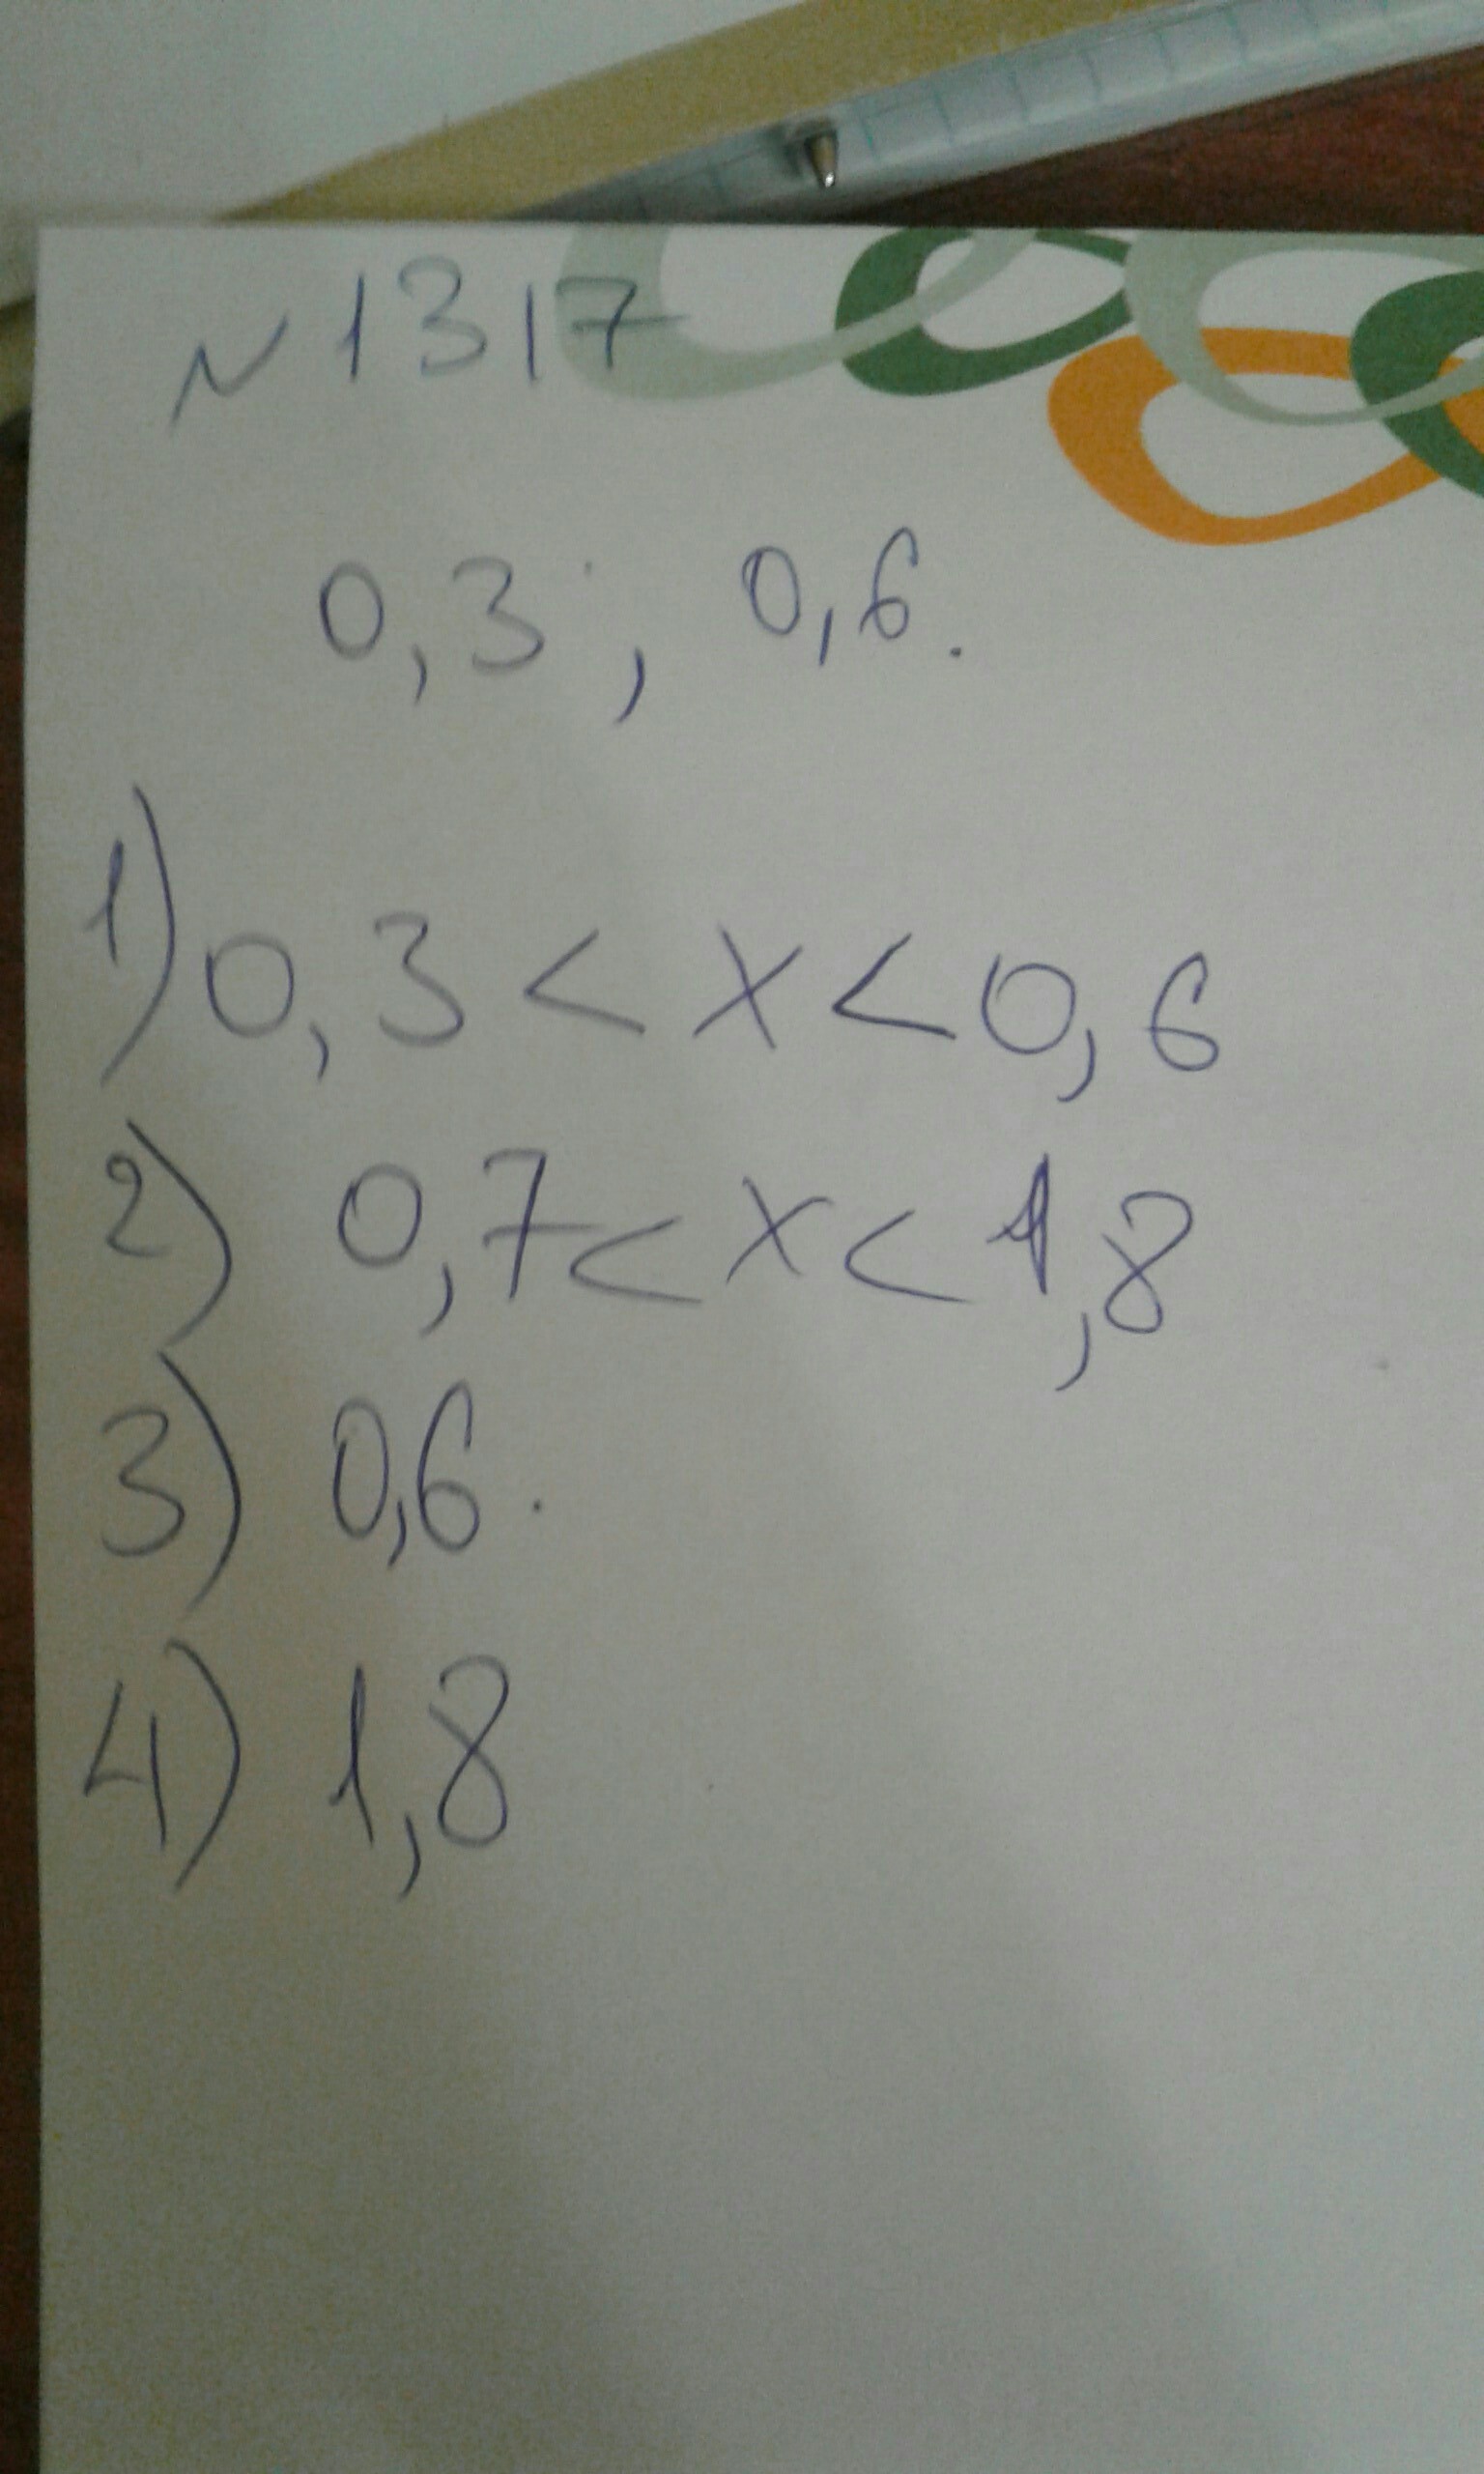 N 1317
0,3 ; 0,6.
1) 0,3 < x < 0,6
2) 0,7 < x < 1,8
3) 0,6.
4) 1,8